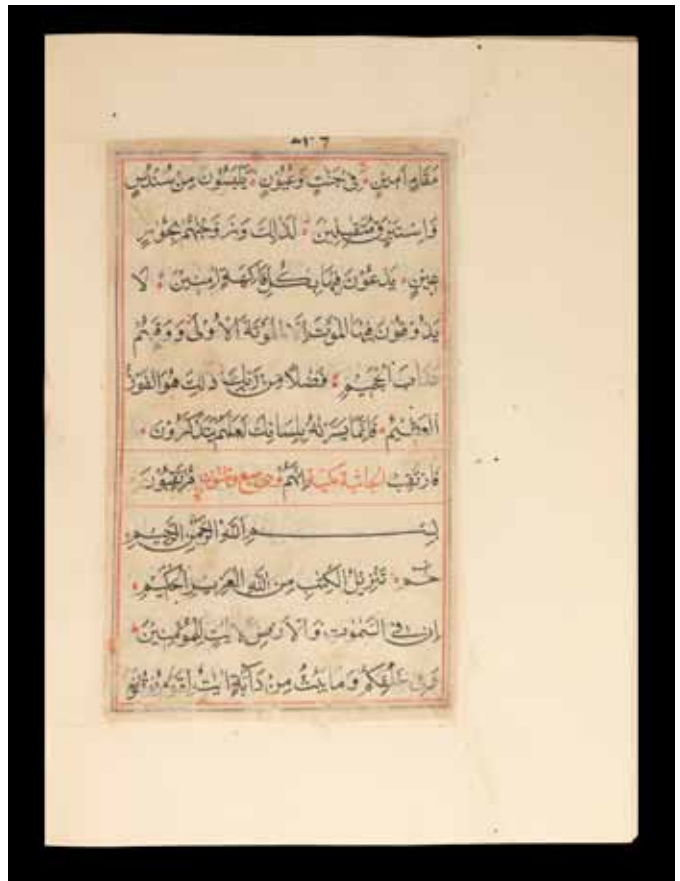 مَقَامٍ اَمِيْنٍ فِيْ جَنّٰتٍ وَّعُيُوْنٍ يَّلْبَسُوْنَ مِنْ سُنْدُسٍ
وَّاِسْتَبْرَقٍ مُّتَقٰبِلِيْنَ كَذٰلِكَ وَزَوَّجْنٰهُمْ بِحُوْرٍ
عِيْنٍ يَدْعُوْنَ فِيْهَا بِكُلِّ فَاكِهَةٍ اٰمِنِيْنَ لَا
يَذُوْقُوْنَ فِيْهَا الْمَوْتَ اِلَّا الْمَوْتَةَ الْاُوْلٰى وَوَقٰىهُمْ
عَذَابَ الْجَحِيْمِ فَضْلًا مِّنْ رَّبِّكَ ذٰلِكَ هُوَ الْفَوْزُ
الْعَظِيْمُ فَاِنَّمَا يَسَّرْنٰهُ بِلِسَانِكَ لَعَلَّهُمْ يَتَذَكَّرُوْنَ
فَارْتَقِبْ الجاثية مكية اِنَّهُمْ وهي سبع وثلثون مُّرْتَقِبُوْنَ
بِسْمِ اللّٰهِ الرَّحْمٰنِ الرَّحِيْمِ
حٰمٓ تَنْزِيْلُ الْكِتٰبِ مِنَ اللّٰهِ الْعَزِيْزِ الْحَكِيْمِ
اِنَّ فِي السَّمٰوٰتِ وَالْاَرْضِ لَاٰيٰتٍ لِّلْمُؤْمِنِيْنَ
وَفِيْ خَلْقِكُمْ وَمَا يَبُثُّ مِنْ دَآبَّةٍ اٰيٰتٌ لِّقَوْمٍ يُّوْقِنُوْنَ